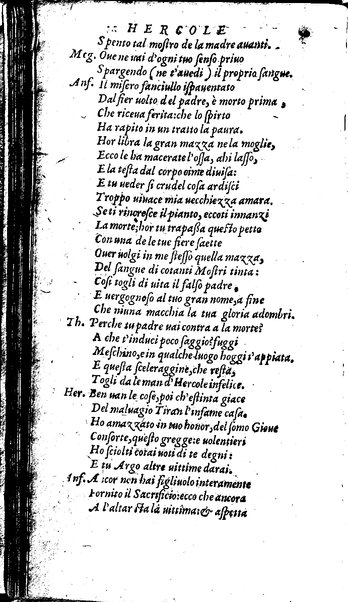 HERCOLE
Spento tal mostro de la madre auanti.
Meg. Oue ne vai d'ogni tuo senso priuo
Spargendo (ne t'auedi) il proprio sangue.
Anf. Il misero fanciullo ispauentato
Dal fier uolto del padre, è morto prima,
Che riceua ferita: che lo spirto
Ha rapito in un tratto la paura.
Hor libra la gran mazza ne la moglie,
Ecco le ha macerate l'ossa, ahi lasso,
E la testa dal corpo oime diuisa:
E tu ueder si crudel cosa ardisci
Troppo uiuace mia uecchiezza amara.
Se ti rincresce il pianto, eccoti innanzi
La morte; hor tu trapassa questo petto
Con una de le tue fiere saette
Ouer uolgi in me stesso quella mazza,
Del sangue di cotanti Mostri tinta:
Cosi togli di uita il falso padre,
E uergognoso al tuo gran nome, a fine
Che niuna macchia la tua gloria adombri.
Th. Perche tu padre uai contra a la morte?
A che t'induci poco saggio? fuggi
Meschino, e in qualche luogo hoggi t'appiata.
E questa sceleraggine, che resta,
Togli da le man d'Hercole infelice.
Her. Ben uan le cose, poi ch'estinta giace
Del maluagio Tiran l'infame casa.
Ho amazzato in tuo honor, del sommo Gioue
Consorte, questo gregge: e uolentieri
Ho sciolti cotai uoti di te degni:
E tu Argo altre uittime darai.
Anf. Ancor non hai figliuolo interamente
Fornito il Sacrificio: ecco che ancora
A l'altar sta la uittima: & aspetta